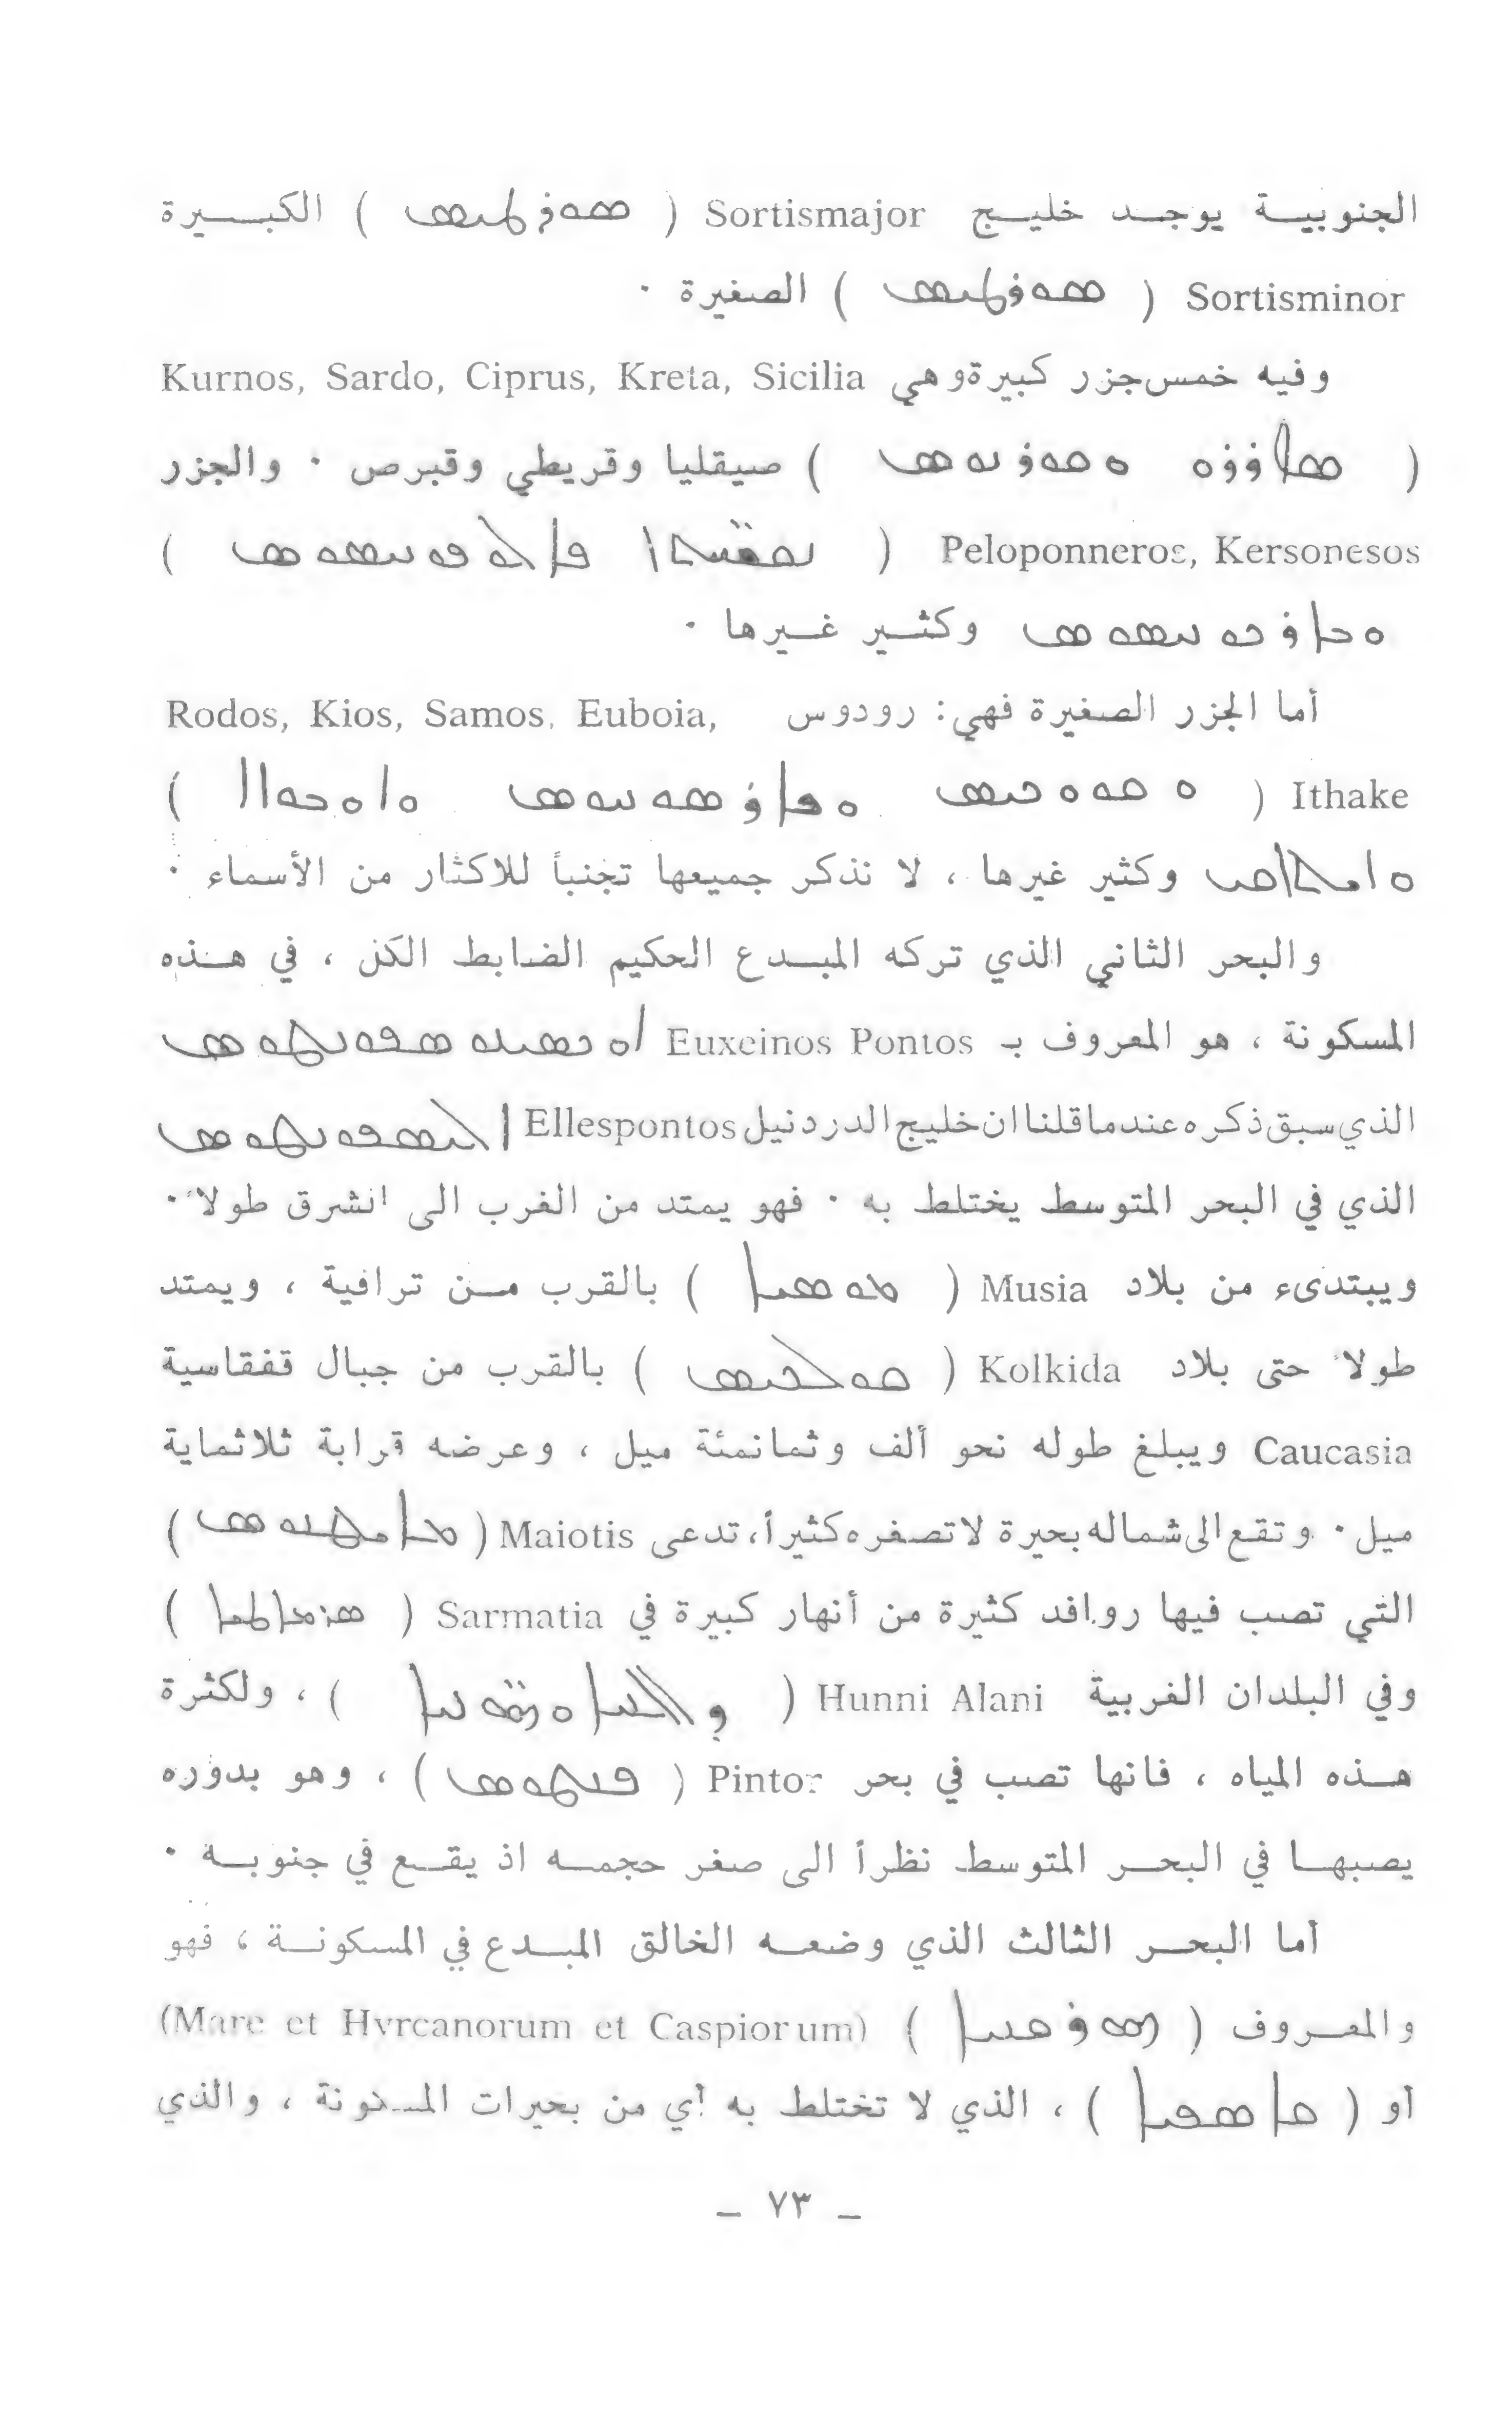 الجنوبية يوجد خليج Sortismajor ( ܣܘܪܛܝܣ ) الكبيرة
Sortisminor ( ܣܘܪܛܝܣ ) الصغيرة ·
وفيه خمس جزر كبيرة وهي Kurnos, Sardo, Ciprus, Kreta, Sicilia
( ܘܩܘܪܢܘܣ ) صيقليا وقريطي وقبرص · والجزر
Peloponneros, Kersonesos ( )
وكثير غيرها ·
أما الجزر الصغيرة فهي : رودوس Rodos, Kios, Samos, Euboia,
Ithake ( )
وكثير غيرها ، لا نذكر جميعها تجنباً للاكثار من الأسماء ·
والبحر الثاني الذي تركه المبدع الحكيم الضابط الكل ، في هذه
المسكونة ، هو المعروف بـ Euxeinos Pontos
الذي سبق ذكره عندما قلنا ان خليج الدردنيل Ellespontos
الذي في البحر المتوسط يختلط به · فهو يمتد من الغرب الى الشرق طولا ·
ويبتدىء من بلاد Musia ( ܡܘܣܝܐ ) بالقرب من ترافية ، ويمتد
طولا حتى بلاد Kolkida ( ܩܘܠܟܝܣ ) بالقرب من جبال قفقاسية
Caucasia ويبلغ طوله نحو ألف وثمانمئة ميل ، وعرضه قرابة ثلاثماية
ميل · وتقع الى شماله بحيرة لا تصغره كثيراً ، تدعى Maiotis ( )
التي تصب فيها روافد كثيرة من أنهار كبيرة في Sarmatia ( ܣܪܡܐܛܝܐ )
وفي البلدان الغربية Hunni Alani ( ) ، ولكثرة
هذه المياه ، فانها تصب في بحر Pintor ( ) ، وهو بدوره
يصبها في البحر المتوسط نظراً الى صغر حجمه اذ يقع في جنوبه ·
أما البحر الثالث الذي وضعه الخالق المبدع في المسكونة ، فهو
والمعروف ( ) (Mare et Hvrcanorum et Caspiorum)
أو ( ܩܐܣܦܝܐ ) ، الذي لا تختلط به أي من بحيرات المسكونة ، والذي
– ٧٣ –